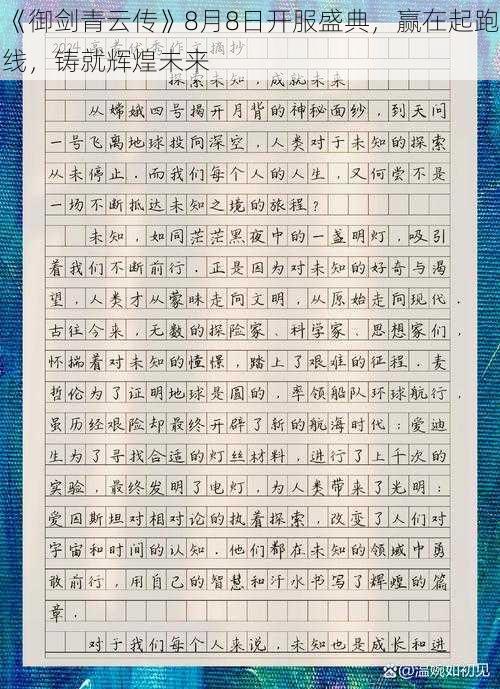 《御剑青云传》8月8日开服盛典，赢在起跑
线，铸就辉煌未来
2024高考优秀作文摘抄
探索未知，走向未来
从嫦娥四号揭开月背的神秘面纱，到天问
一号飞离地球投向深空，人类对于未知的探索
从未停止．而我们每个人的人生，又何尝不是
一场不断抵达未知之境的旅程？
未知，如同茫茫黑夜中的一盏明灯，吸引
着我们不断前行．正是因为对未知的好奇与渴
望，人类才从蒙昧走向文明，从原始走向现代．
古往今来，无数的探险家、科学家、思想家们，
怀揣着对未知的憧憬，踏上了艰难的征程．麦
哲伦为了证明地球是圆的，率领船队环球航行，
虽历经艰险却最终开辟了新的航海时代；爱迪
生为了寻找合适的灯丝材料，进行了上千次的
实验，最终发明了电灯，为人类带来了光明；
爱因斯坦对相对论的执着探索，改变了人们对
宇宙和时间的认知．他们都在未知的领域中勇
敢前行，用自己的智慧和汗水书写了辉煌的篇
章．
对于我们每个人来说，未知也是成长和进
@温婉如初见